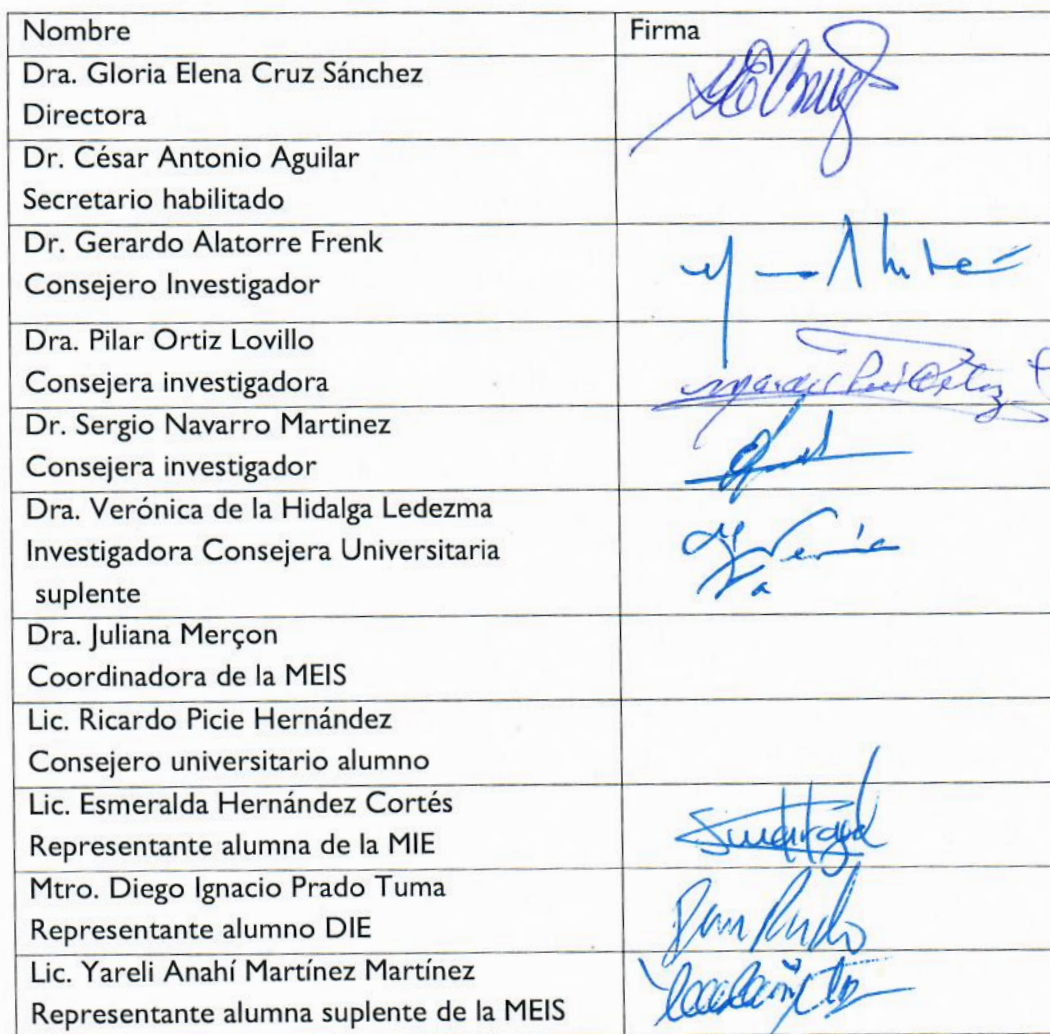 Nombre Firma
Dra. Gloria Elena Cruz Sánchez
Directora
Dr. César Antonio Aguilar
Secretario habilitado
Dr. Gerardo Alatorre Frenk
Consejero Investigador
Dra. Pilar Ortiz Lovillo
Consejera investigadora
Dr. Sergio Navarro Martinez
Consejera investigador
Dra. Verónica de la Hidalga Ledezma
Investigadora Consejera Universitaria
suplente
Dra. Juliana Merçon
Coordinadora de la MEIS
Lic. Ricardo Picie Hernández
Consejero universitario alumno
Lic. Esmeralda Hernández Cortés
Representante alumna de la MIE
Mtro. Diego Ignacio Prado Tuma
Representante alumno DIE
Lic. Yareli Anahí Martínez Martínez
Representante alumna suplente de la MEIS